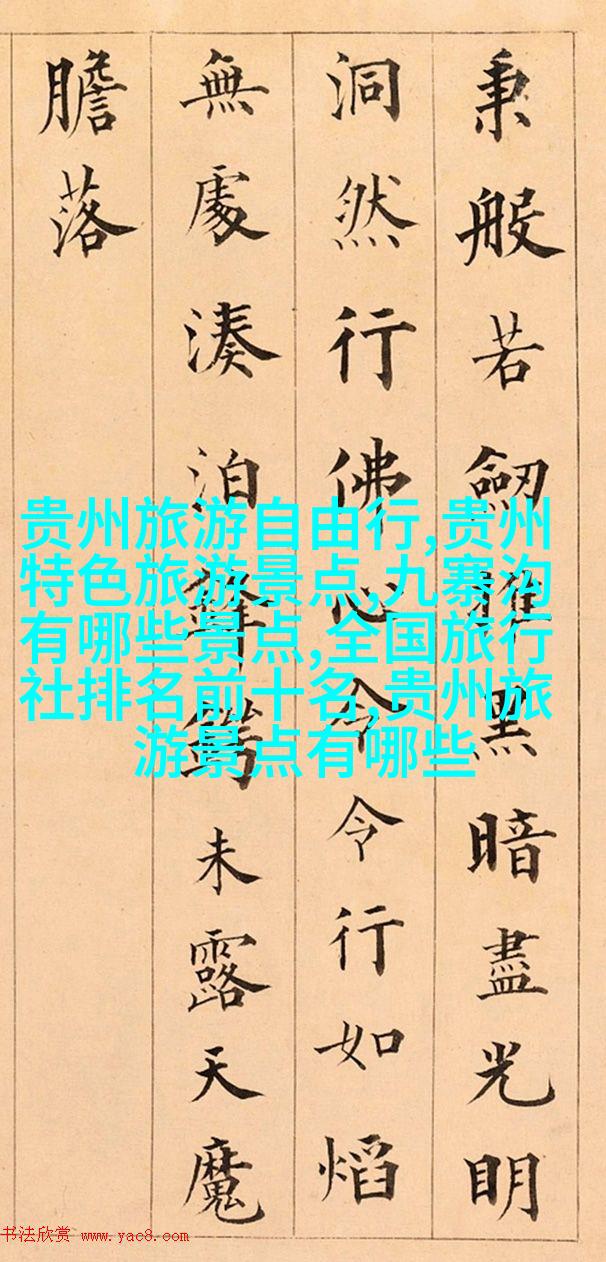 秉般若劒摧黑暗盡光明
洞然行佛心令令行如焰
無處湊泊聲未露天魔
膽落
贵州旅游自由行,贵州
特色旅游景点,九寨沟
有哪些景点,全国旅行
社排名前十名,贵州旅
游景点有哪些
书法欣赏 www.yac8.com